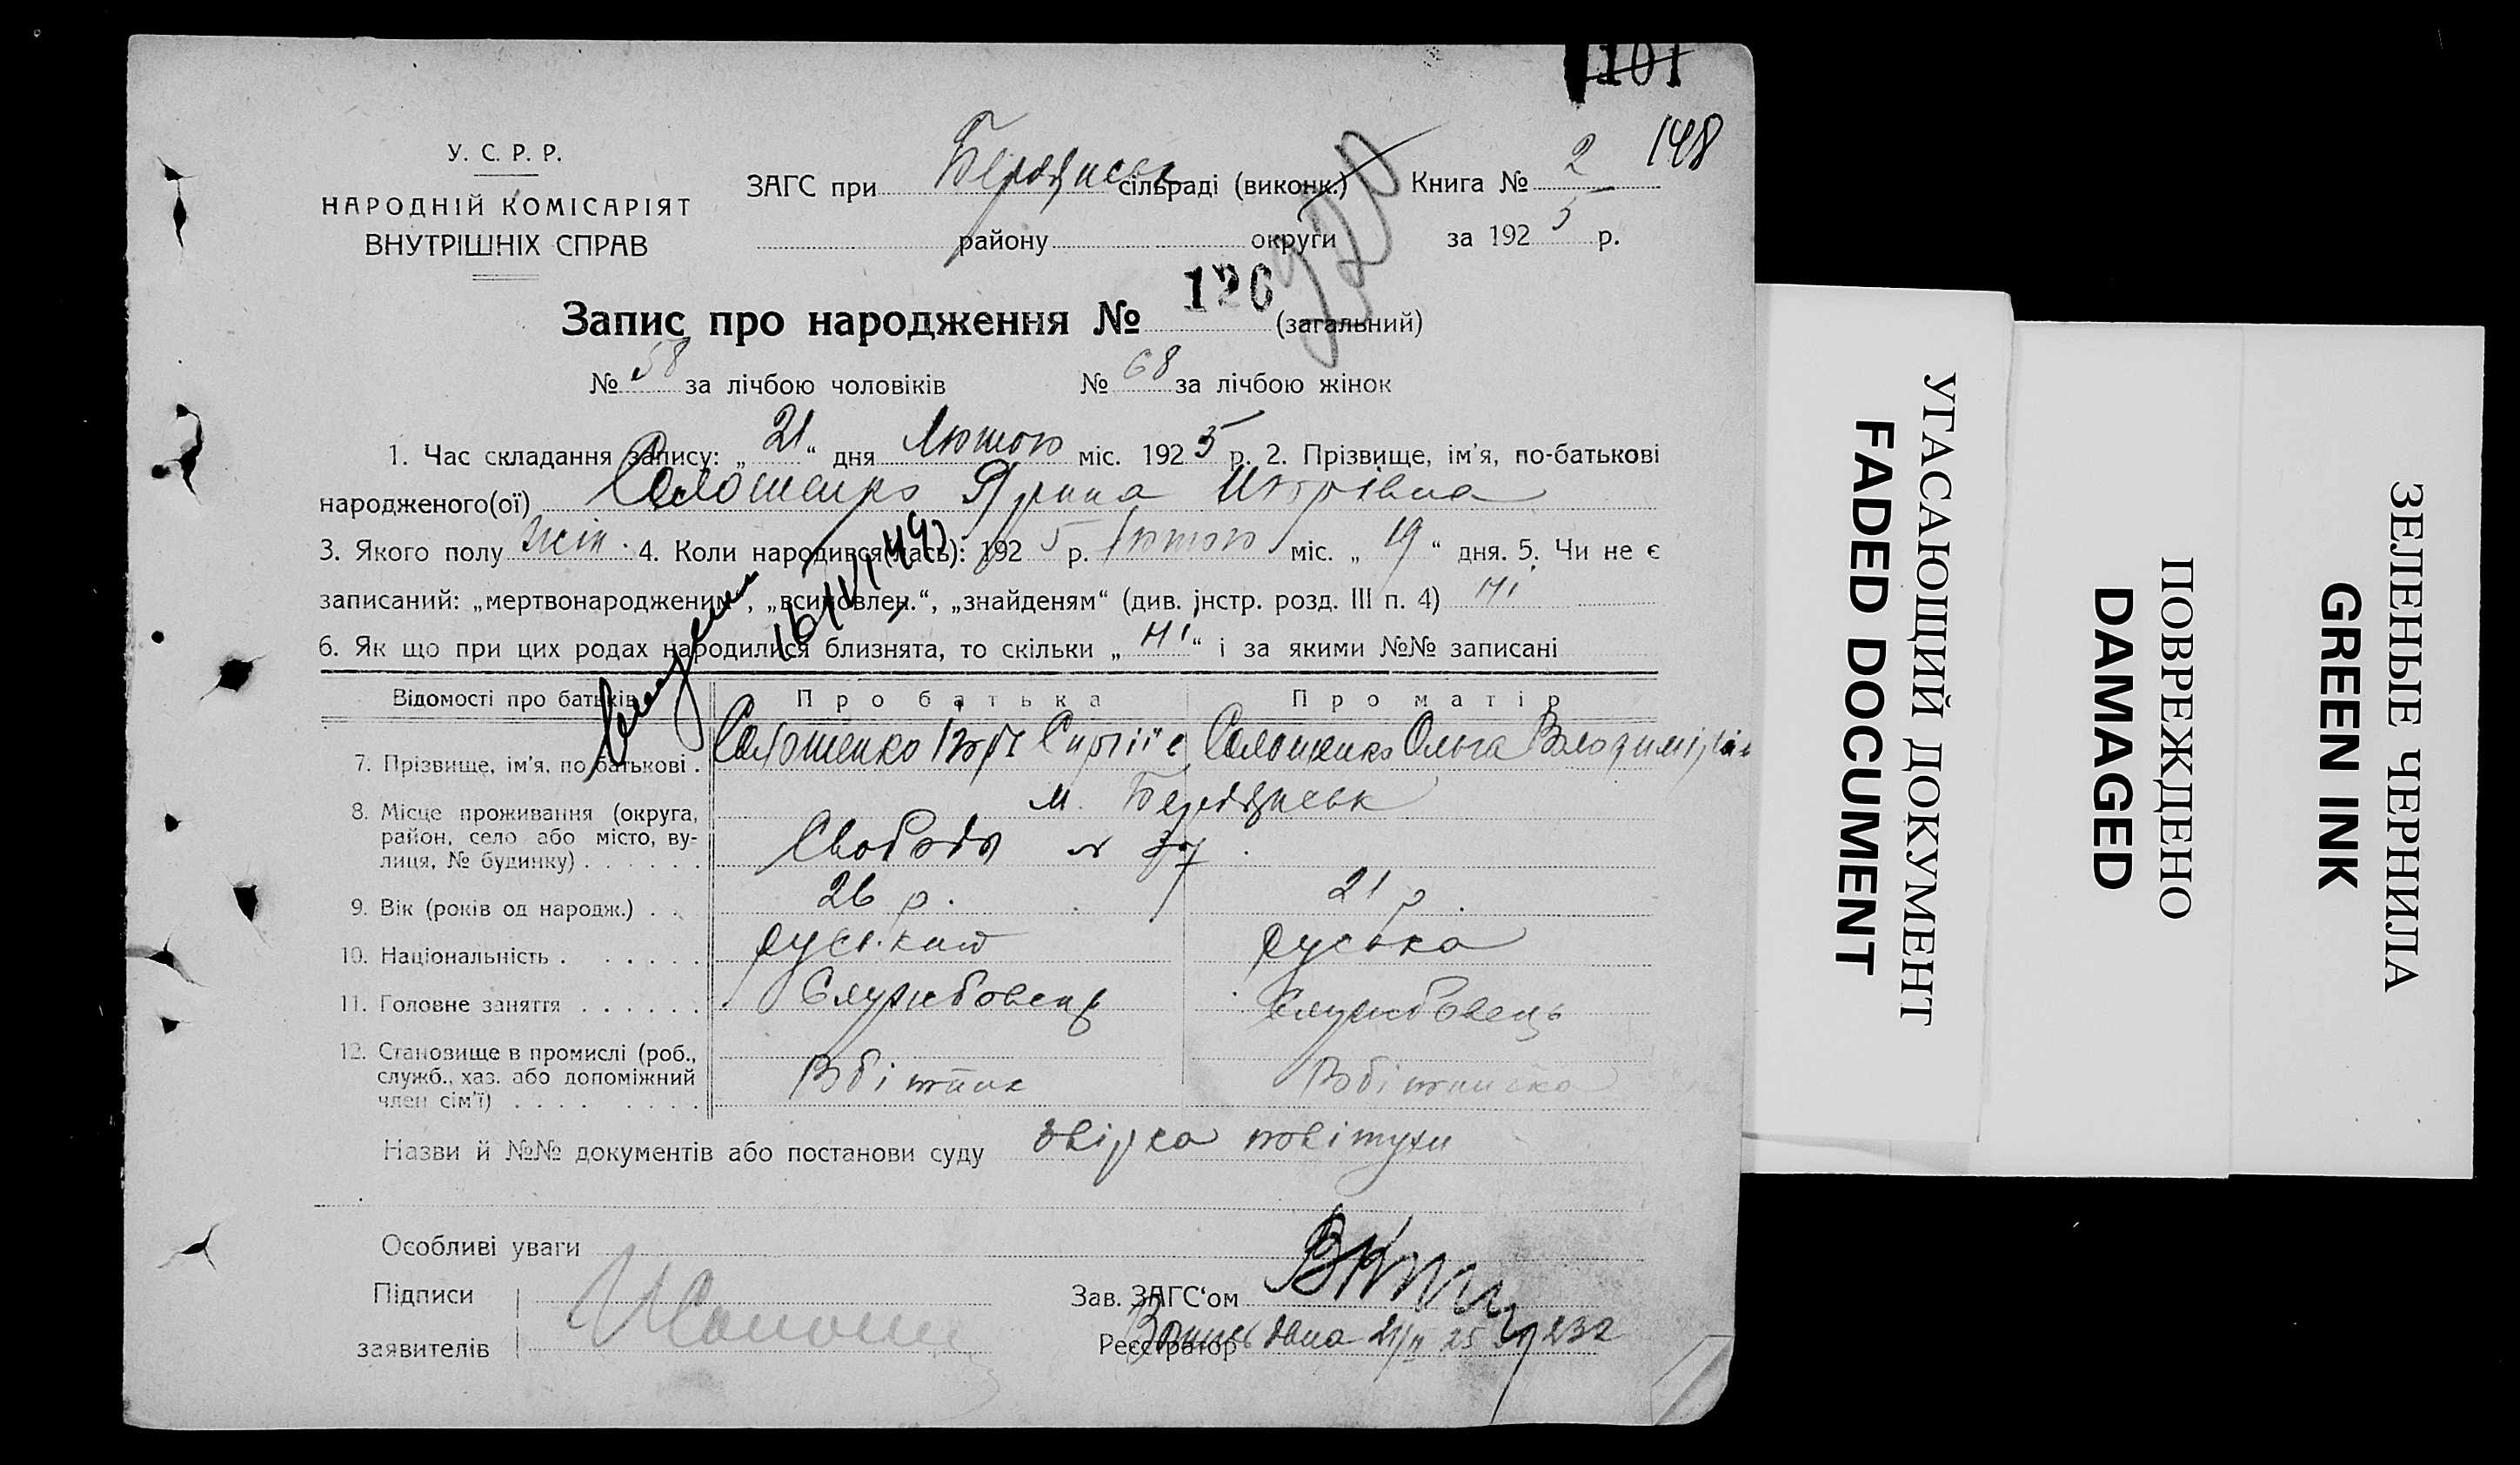 101
148
У. С. Р. Р.
НАРОДНІЙ КОМІСАРІЯТ
ВНУТРІШНІХ СПРАВ
ЗАГС при Бердянськ сільраді (виконк.) Книга № 2
району округи за 1925 р.
Запис про народження № 126 (загальний)
№ 58 за лічбою чоловіків № 68 за лічбою жінок
1. Час складання запису: „21“ дня Лютого міс. 1925 р. 2. Прізвище, ім’я, по-батькові
народженого(ої) Солошенко Ярина
3. Якого полу жін. 4. Коли народився(лась): 1925 р. Лютого міс. „19“ дня. 5. Чи не є
записаний: „мертвонародженим“, „всиновлен.“, „знайденям“ (див. інстр. розд. III п. 4) Ні
6. Як що при цих родах народилися близнята, то скільки „Ні“ і за якими №№ записані
Відомості про батьків Про батька Про матір
7. Прізвище, ім’я, по батькові . Солошенко Солошенко Ольга
8. Місце проживання (округа,
район, село або місто, ву-
лиця, № будинку) . . . . . .
м. Бердянськ
Свободи № 37
9. Вік (років од народж.) . . 26 р. 21 р.
10. Національність . . . . . . руський руська
11. Головне заняття . . . . . . Службовець Службовець
12. Становище в промислі (роб.,
служб., хаз. або допоміжний
член сім’ї) . . . . . . . .
Назви й №№ документів або постанови суду повітухи
Особливі уваги
Підписи
заявителів
Зав. ЗАГС‘ом
Реєстратор
УГАСАЮЩИЙ ДОКУМЕНТ
FADED DOCUMENT
ПОВРЕЖДЕНО
DAMAGED
ЗЕЛЕНЫЕ ЧЕРНИЛА
GREEN INK